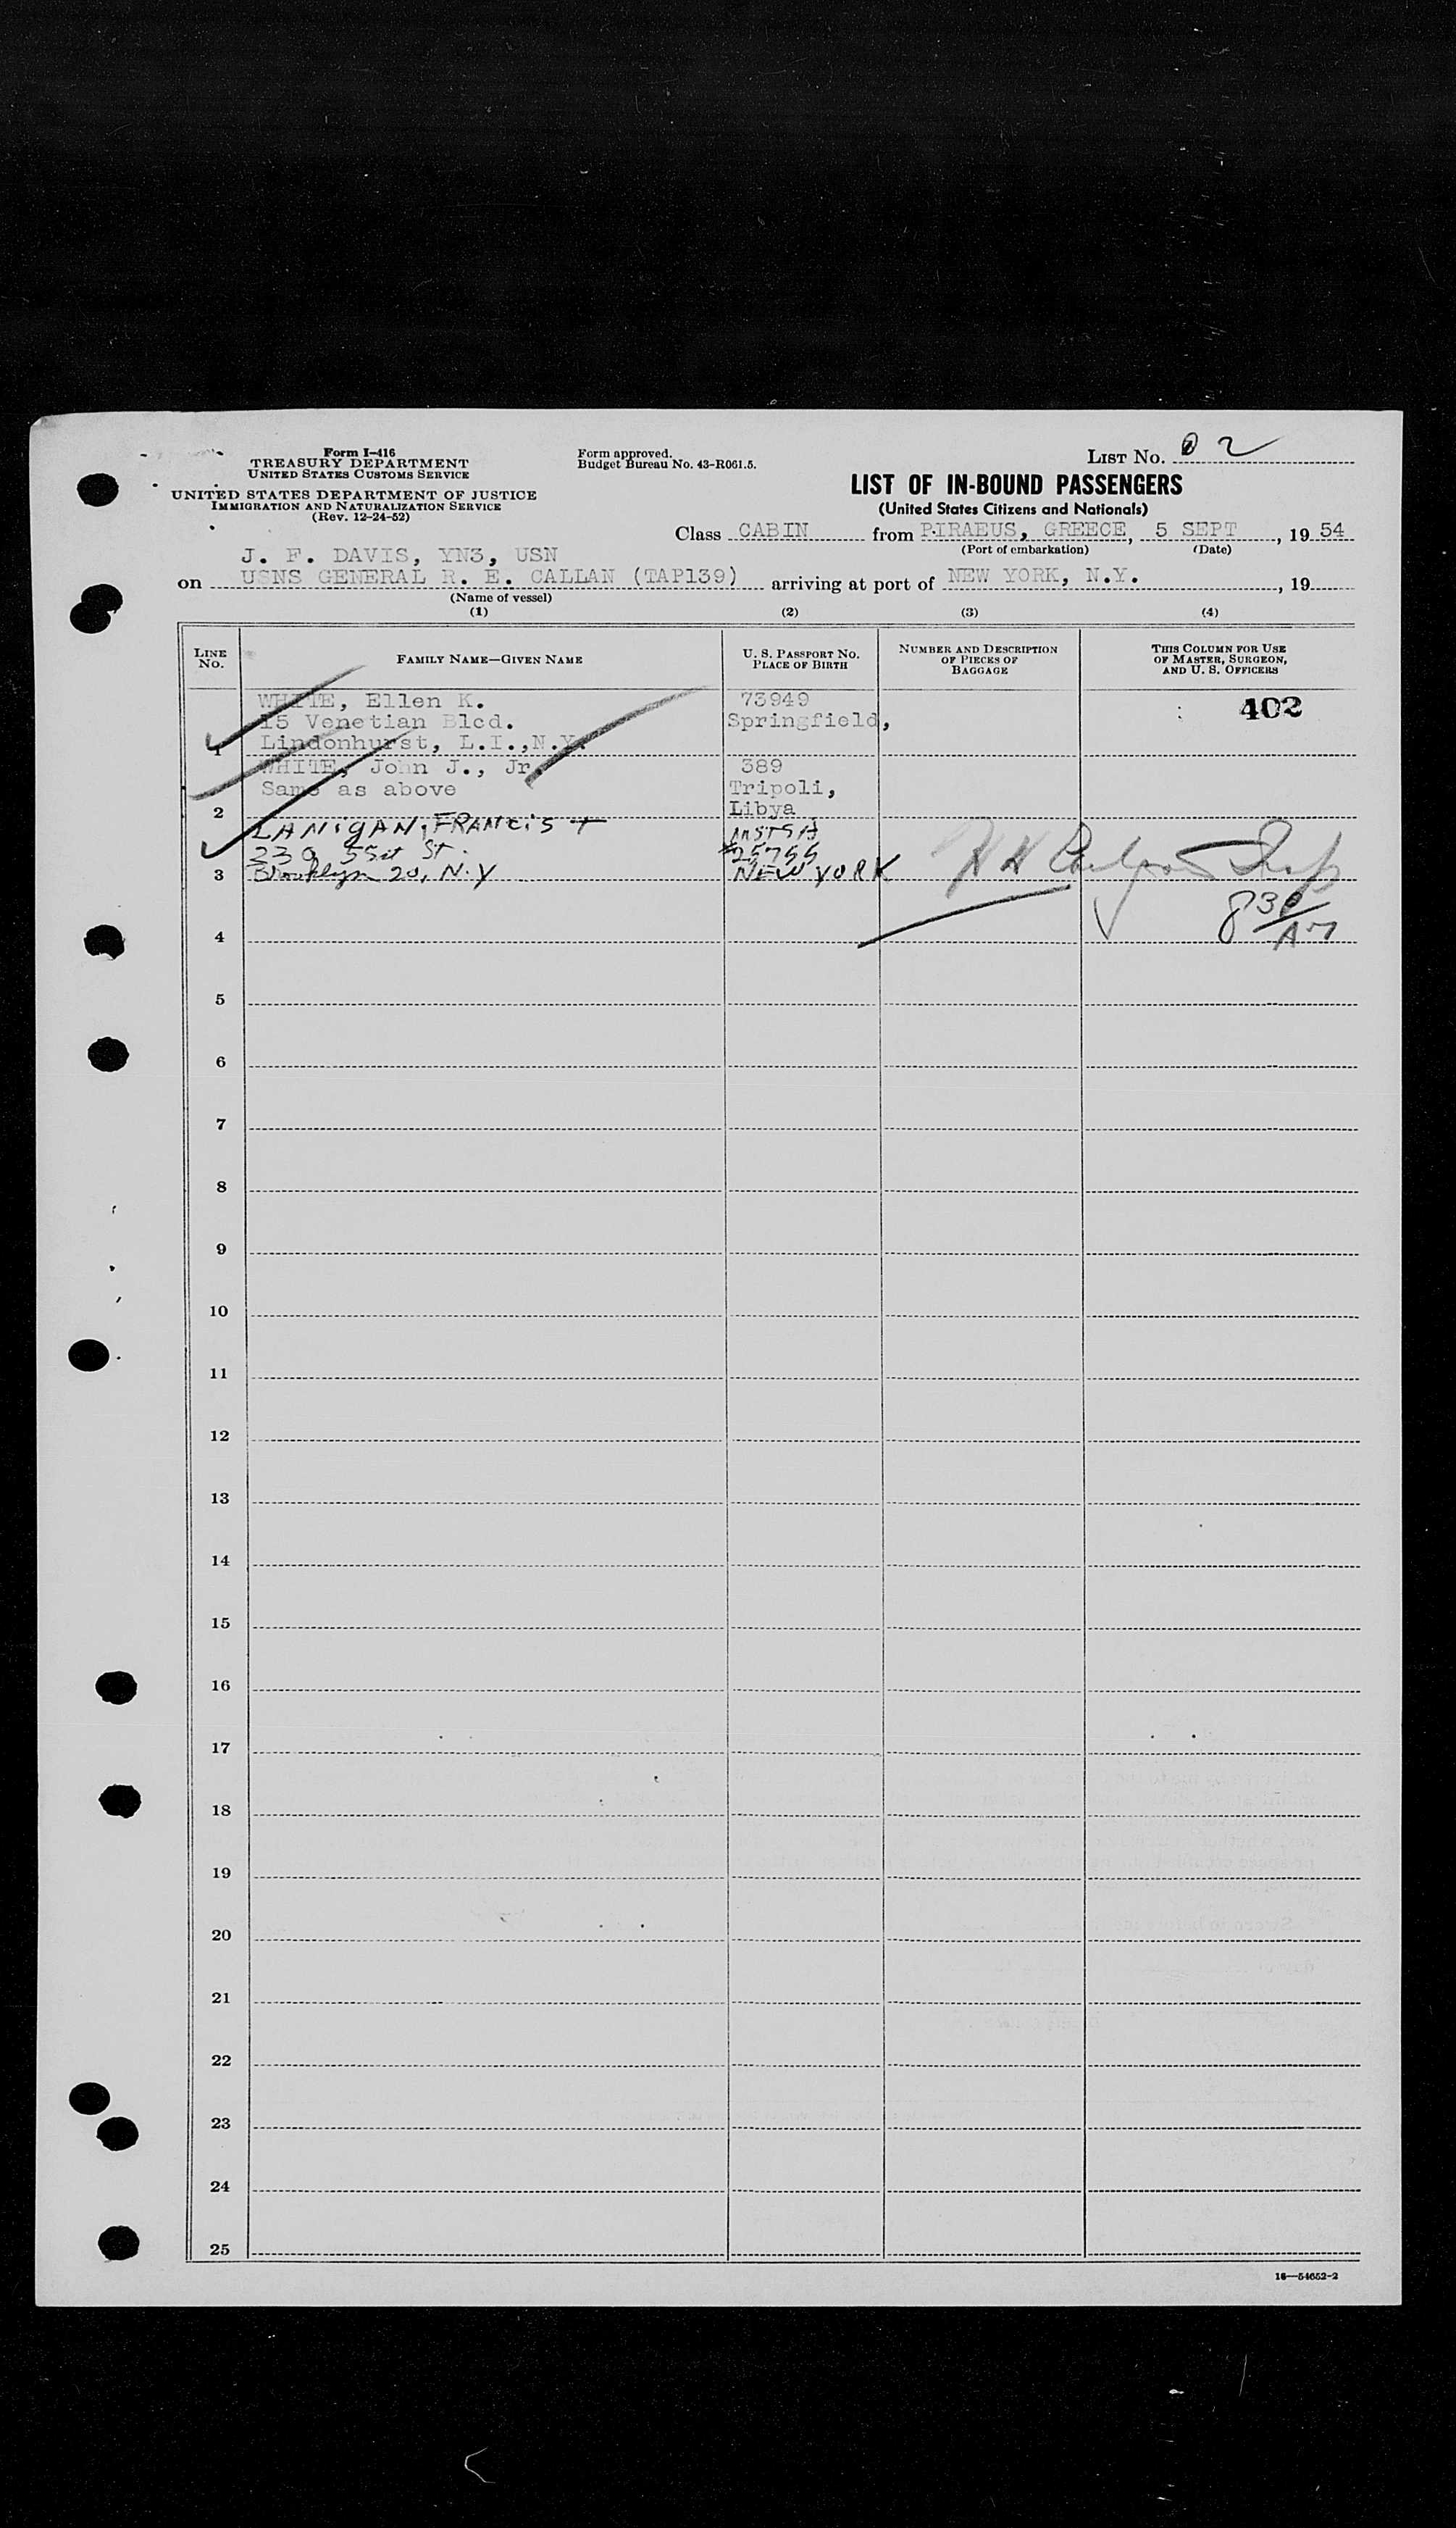 Form I-416
TREASURY DEPARTMENT
UNITED STATES CUSTOMS SERVICE
UNITED STATES DEPARTMENT OF JUSTICE
IMMIGRATION AND NATURALIZATION SERVICE
(Rev. 12-24-52)
Form approved.
Budget Bureau No. 43-R061.5.
LIST No. 02
LIST OF IN-BOUND PASSENGERS
(United States Citizens and Nationals)
Class CABIN from PIRAEUS, GREECE, 5 SEPT, 19 54
(Port of embarkation) (Date)
J. F. DAVIS, YN3, USN
on USNS GENERAL R. E. CALLAN (TAP139) arriving at port of NEW YORK, N.Y., 19
(Name of vessel)
(1) (2) (3) (4)
LINE No. FAMILY NAME—GIVEN NAME U. S. PASSPORT No. PLACE OF BIRTH NUMBER AND DESCRIPTION OF PIECES OF BAGGAGE THIS COLUMN FOR USE OF MASTER, SURGEON, AND U. S. OFFICERS
WHITE, Ellen K. 73949 402
15 Venetian Blcd. Springfield,
1 Lindonhurst, L.I.,N.Y.
WHITE, John J., Jr. 389
Same as above Tripoli,
2 Libya
LANIGAN, FRANCIS MSTSA
St. #25755
3 Brooklyn 20, N.Y NEW YORK
830 AM
4
5
6
7
8
9
10
11
12
13
14
15
16
17
18
19
20
21
22
23
24
25
16—54652-2